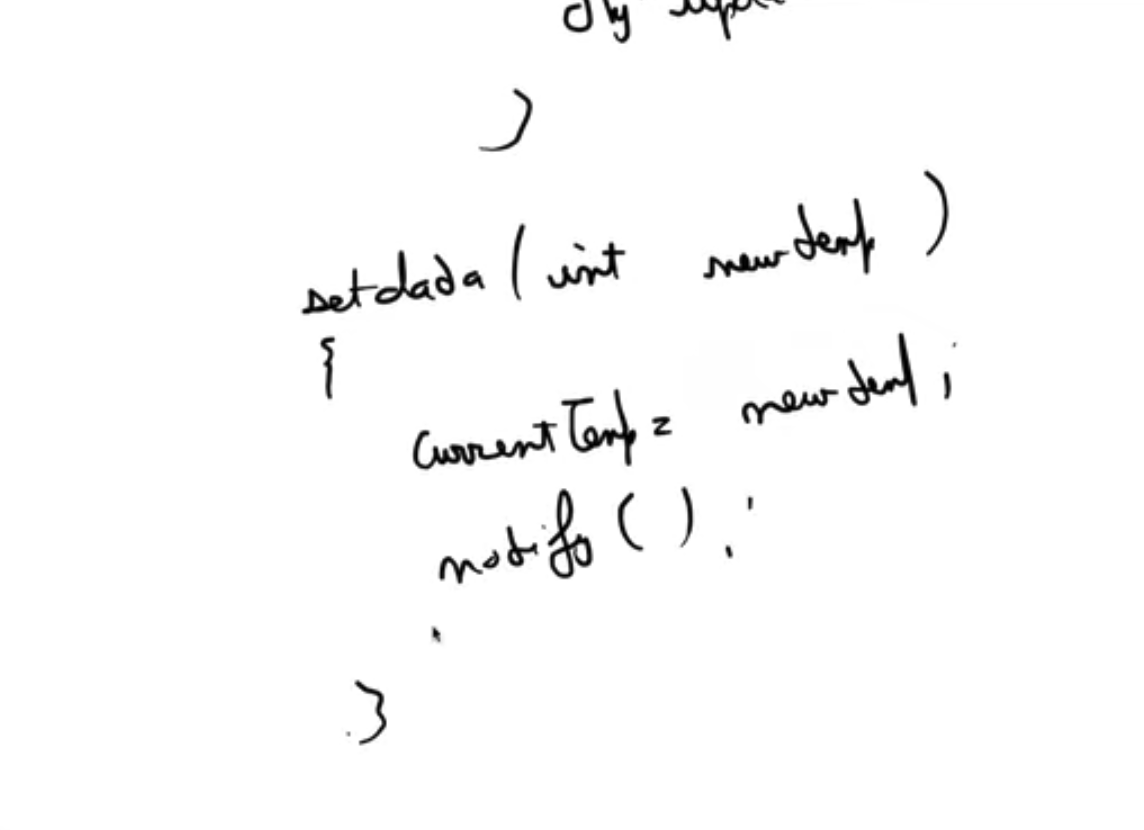 }
setdata (int newtemp )
{
currentTemp = newtemp ;
notify ( ) ;
}